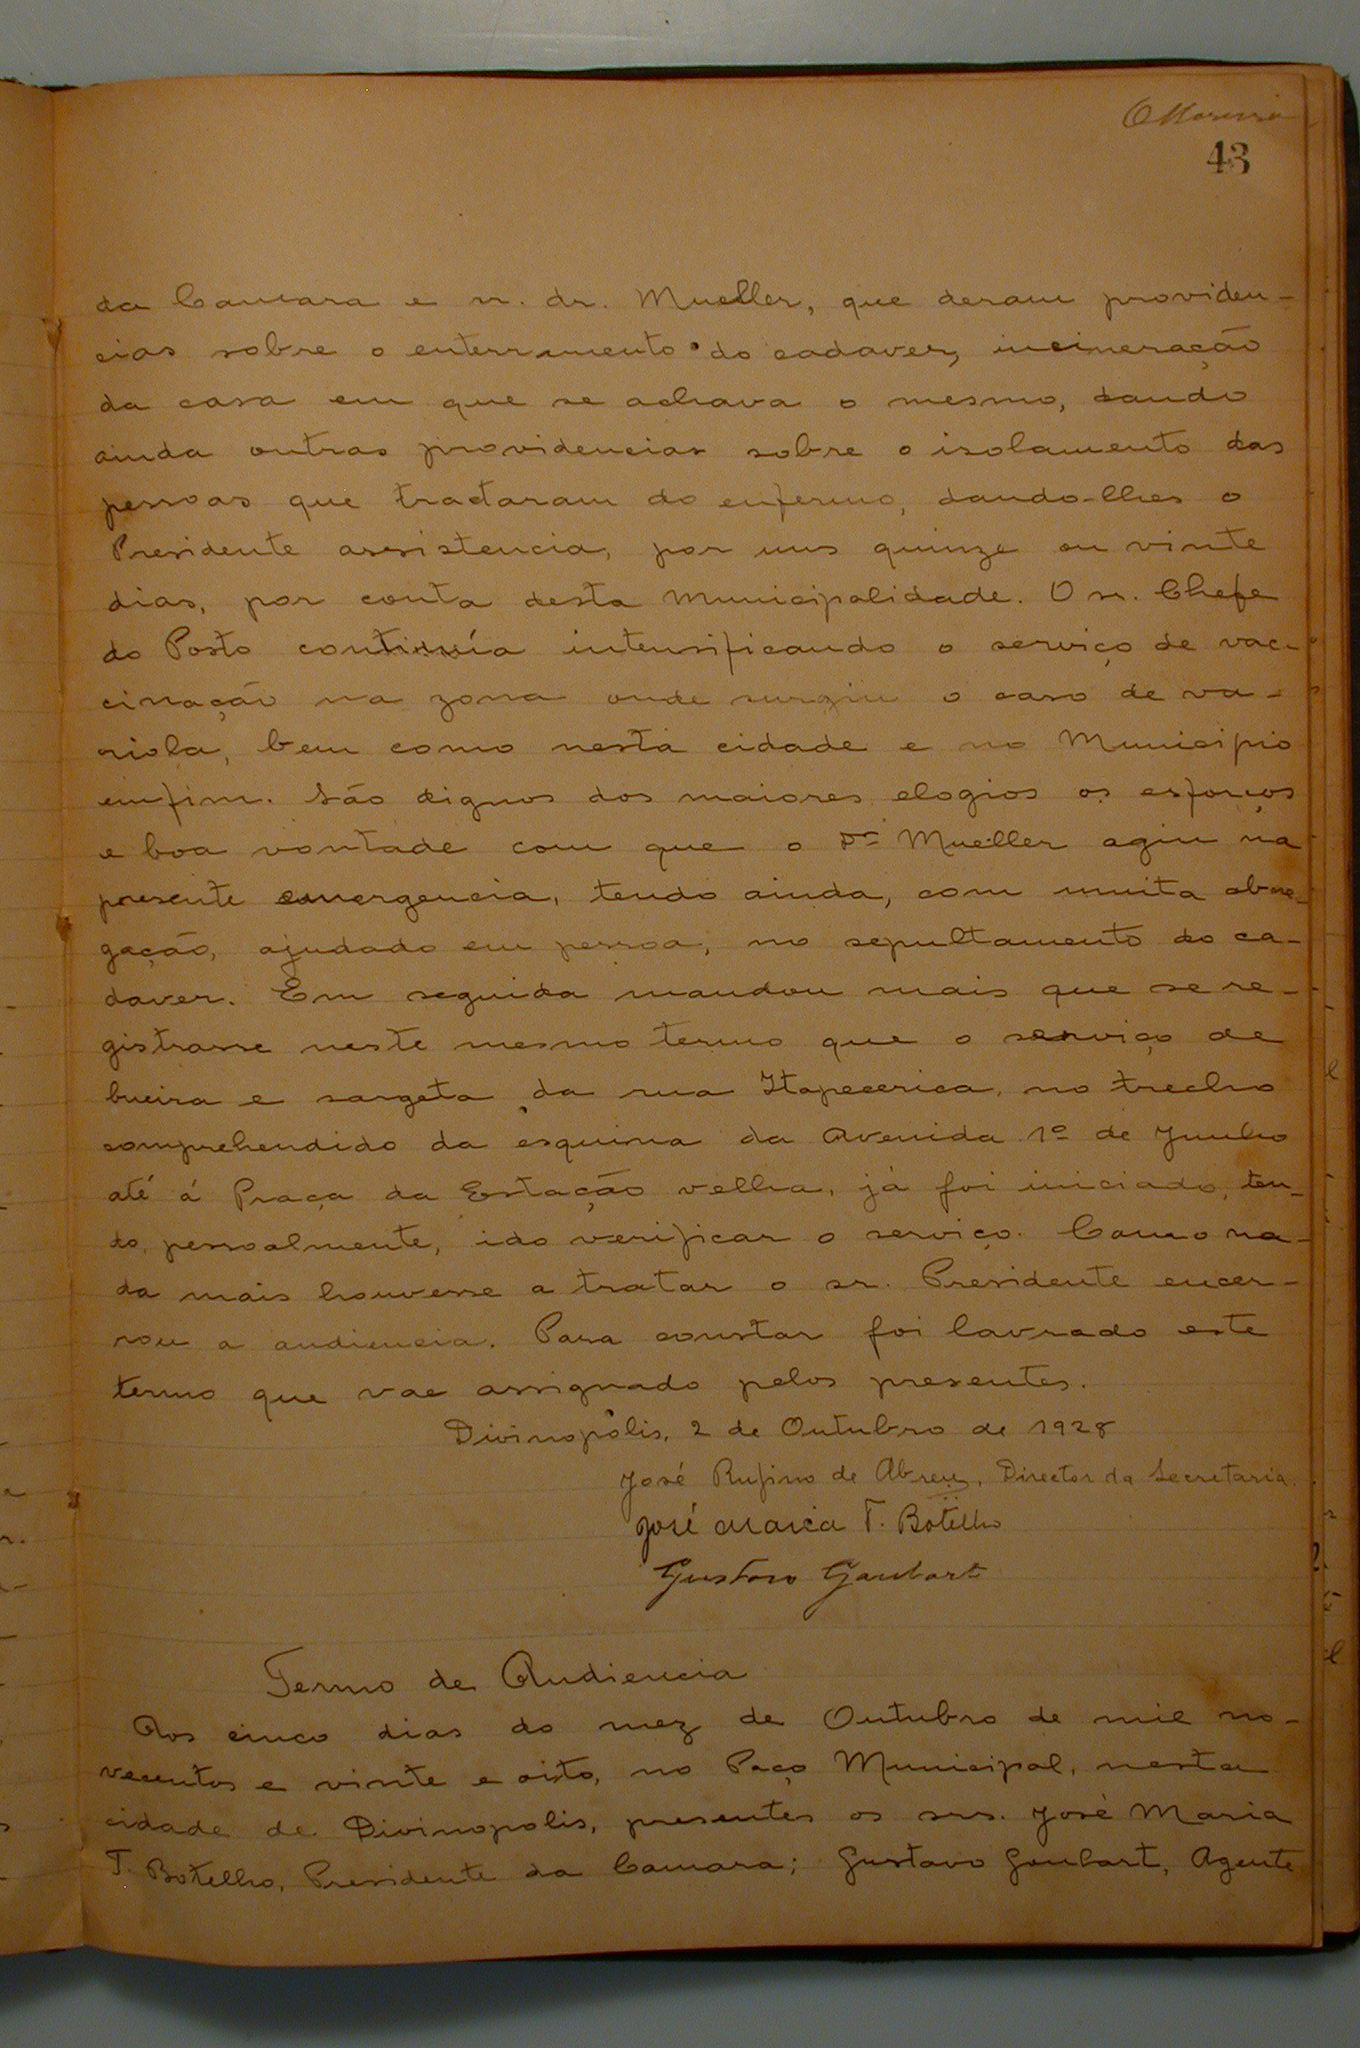 43
da Camara e sr. dr. Mueller, que deram providen-
cias sobre o enterramento do cadaver, incineração
da casa em que se achava o mesmo, dando
ainda outras providencias sobre o isolamento das
pessoas que tractaram do enfermo, dando-lhes o
Presidente assistencia, por uns quinze ou vinte
dias, por conta desta Municipalidade. O sr. Chefe
do Posto continúa intensificando o serviço de vac-
cinação na zona onde surgiu o caso de va-
riola, bem como nesta cidade e no Municipio
emfim. São dignos dos maiores elogios os esforços
e boa vontade com que o Dr Mueller agiu na
presente emergencia, tendo ainda, com muita abne-
gação, ajudado em pessoa, no sepultamento do ca-
daver. Em seguida mandou mais que se re-
gistrasse neste mesmo termo que o serviço de
bueira e sargeta da rua Itapecerica, no trecho
comprehendido da esquina da Avenida 1º de Junho
até á Praça da Estação velha, já foi iniciado, ten-
do, pessoalmente, ido verificar o serviço. Como na-
da mais houvesse a tratar o sr. Presidente encer-
rou a audiencia. Para constar foi lavrado este
termo que vae assignado pelos presentes.
Divinopólis, 2 de Outubro de 1928
José Rufino de Abreu, Director da Secretaria.
José Maria T. Botelho
Gustavo Goulart
Termo de Audiencia
Aos cinco dias do mez de Outubro de mil no-
vecentos e vinte e oito, no Paço Municipal, nesta
cidade de Divinopolis, presentes os srs. José Maria
T. Botelho, Presidente da Camara; Gustavo Goulart, Agente